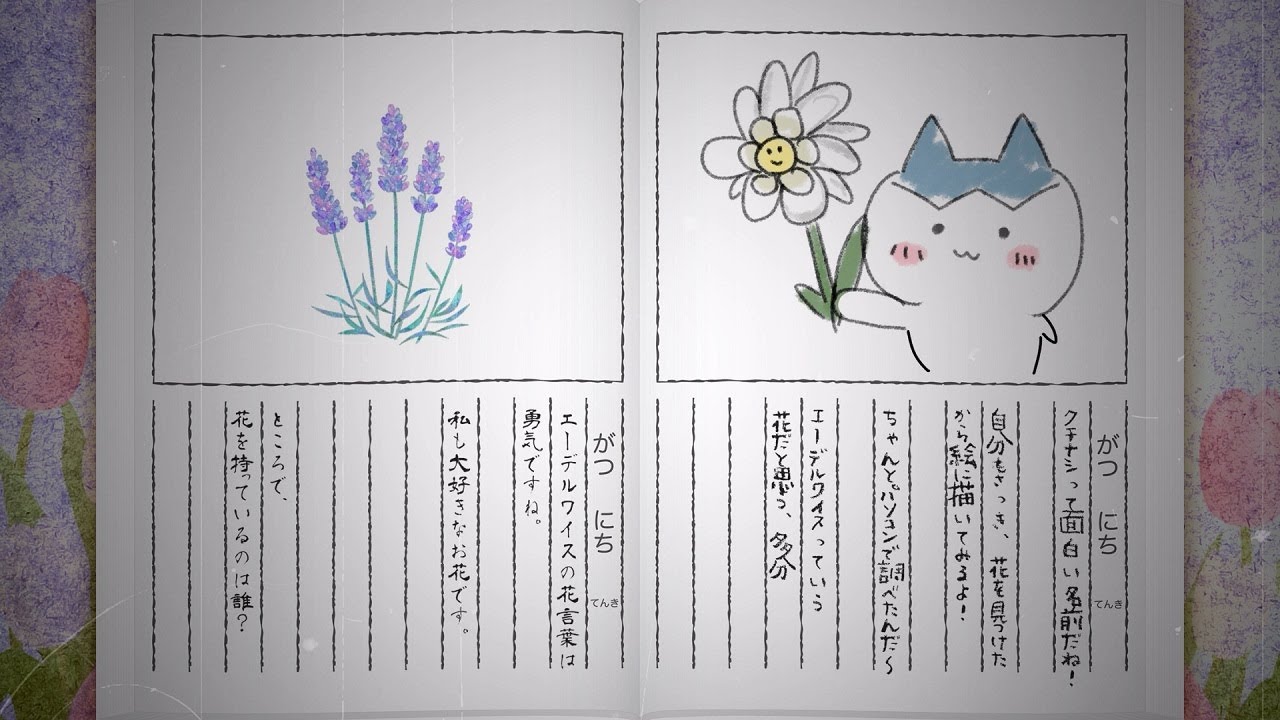 がつ にち てんき
クチナシって面白い名前だね!
自分もさっき、花を見つけた
から絵に描いてみるよ!
ちゃんとパソコンで調べたんだ〜
エーデルワイスっていう
花だと思う、多分
がつ にち てんき
エーデルワイスの花言葉は
勇気ですね。
私も大好きなお花です。
ところで、
花を持っているのは誰?